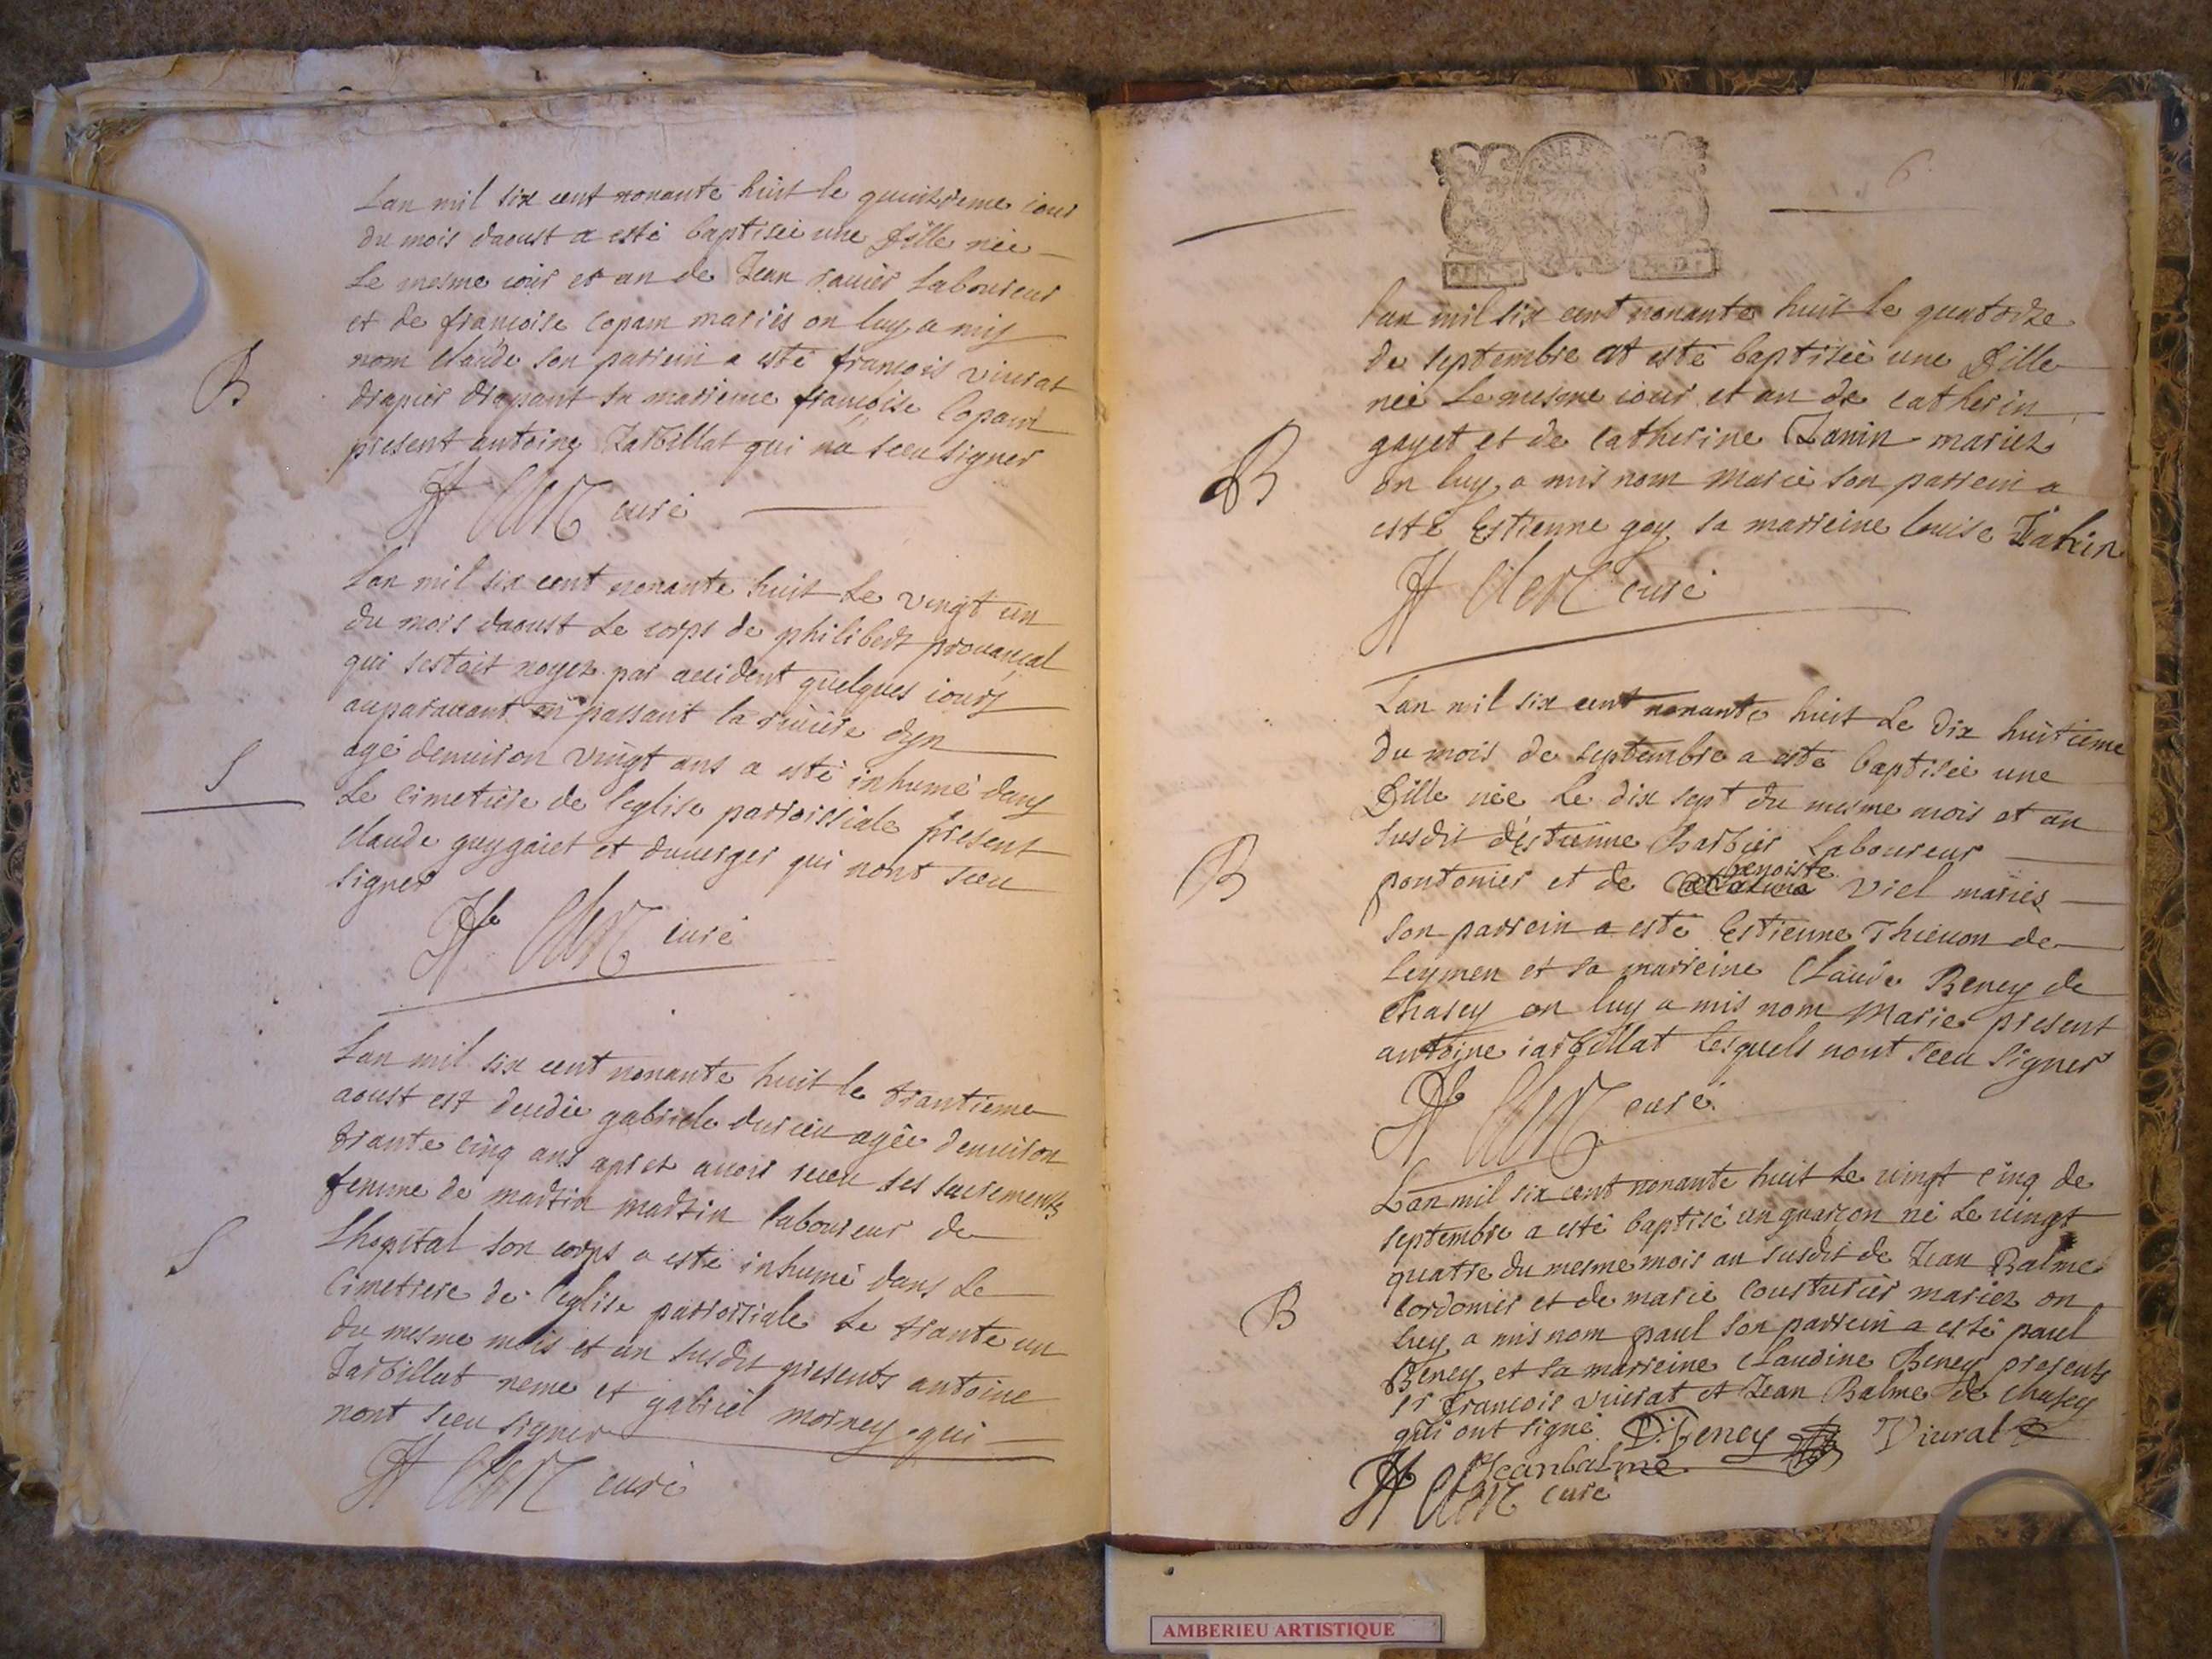 Lan mil six cent nonante huit le quinzieme iour
du mois daoust a esté baptisée une fille née
Le mesme iour et an de Jean rauier Laboureur
et de francoise Copam mariés on luy a mis
nom claude son parrein a esté francois viurat
drapier drapant sa marreine francoise Copam
present antoine Jarbillat qui na sceu signer
B
Clerc curé
Lan mil six cent nonante huit Le vingt un
du mois daoust Le corps de philibert prouancal
qui sestoit noyez par accident quelques iours
auparauant en passant la riuiere dyn
agé denuiron vingt ans a esté inhumé dans
Le cimetiere de leglise parroissiale present
claude guygaret et duuerger qui nont sceu
signer
S
Clerc curé
Lan mil six cent nonante huit le trantieme
aoust est decedée gabriele durieu agée denuiron
trante cinq ans apres auoir receu ses sacrements
femme de martin martin laboureur de
Lhopital son corps a esté inhumé dans Le
Cimetiere de leglise parroissiale Le trante un
du mesme mois et an susdit presents antoine
Jarbillat et gabriel morney qui
nont sceu signer
S
Clerc curé
6
lan mil six cent nonante huit le quatorze
de septembre at esté baptisée une fille
née Le mesme iour et an de catherin
gayet et de catherine Janin mariez
on luy a mis nom Marie son parrein a
esté Estienne goy sa marreine louise
B
Clerc curé
Lan mil six cent nonante huit Le dix huitieme
du mois de septembre a esté baptisée une
fille née Le dix sept du mesme mois et an
susdit destienne Barbier Laboureur
benoiste
pontonier et de Viel mariés
son parrein a esté Estienne Thieuon de
Leymen et sa marreine Claude Beney de
chasey on luy a mis nom Marie present
antoine iarbillat Lesquels nont sceu signer
B
Clerc curé
Lan mil six cent nonante huit Le vingt cinq de
septembre a esté baptisé un guarcon né Le vingt
quatre du mesme mois an susdit de Jean Balme
Cordonier et de marie Cousturier mariez on
luy a mis nom paul son parrein a esté paul
Beney et sa marreine Claudine Beney presents
sr francois viurat et Jean Balme de chasey
qui ont signé Beney Viurat
B
Jean balme
Clerc curé
AMBERIEU ARTISTIQUE